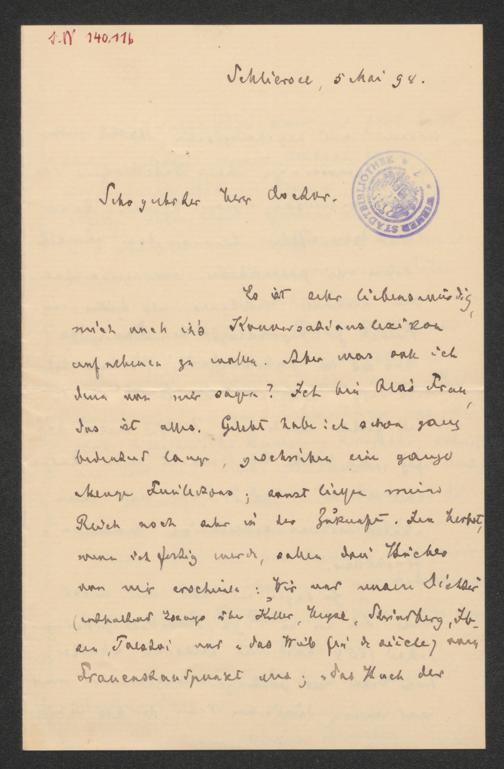 I.N 140.116
Schliersee, 5 Mai 94.
WIENER STADTBIBLIOTHEK
Sehr geehrter Herr Doctor.
Es ist sehr liebenswürdig,
mich noch in's Konversationslexikon
aufnehmen zu wollen. Aber was soll ich
denn von mir sagen? Ich bin Frau,
das ist alles. Gelebt habe ich schon ganz
bedeutend lange, geschrieben eine ganze
Menge Feuilletons; sonst liegen meine
noch sehr in der Zukunft. Im Herbst,
wenn ich fertig werde, sollen drei Bücher
von mir erscheinen: Wir und unsere Dichter
(enthaltend Essays über Keller, Heyse, Strindberg, Ib-
sen, Tolstoi und "das Weib fin de siècle) vom
Frauenstandpunkt aus; "das Buch der